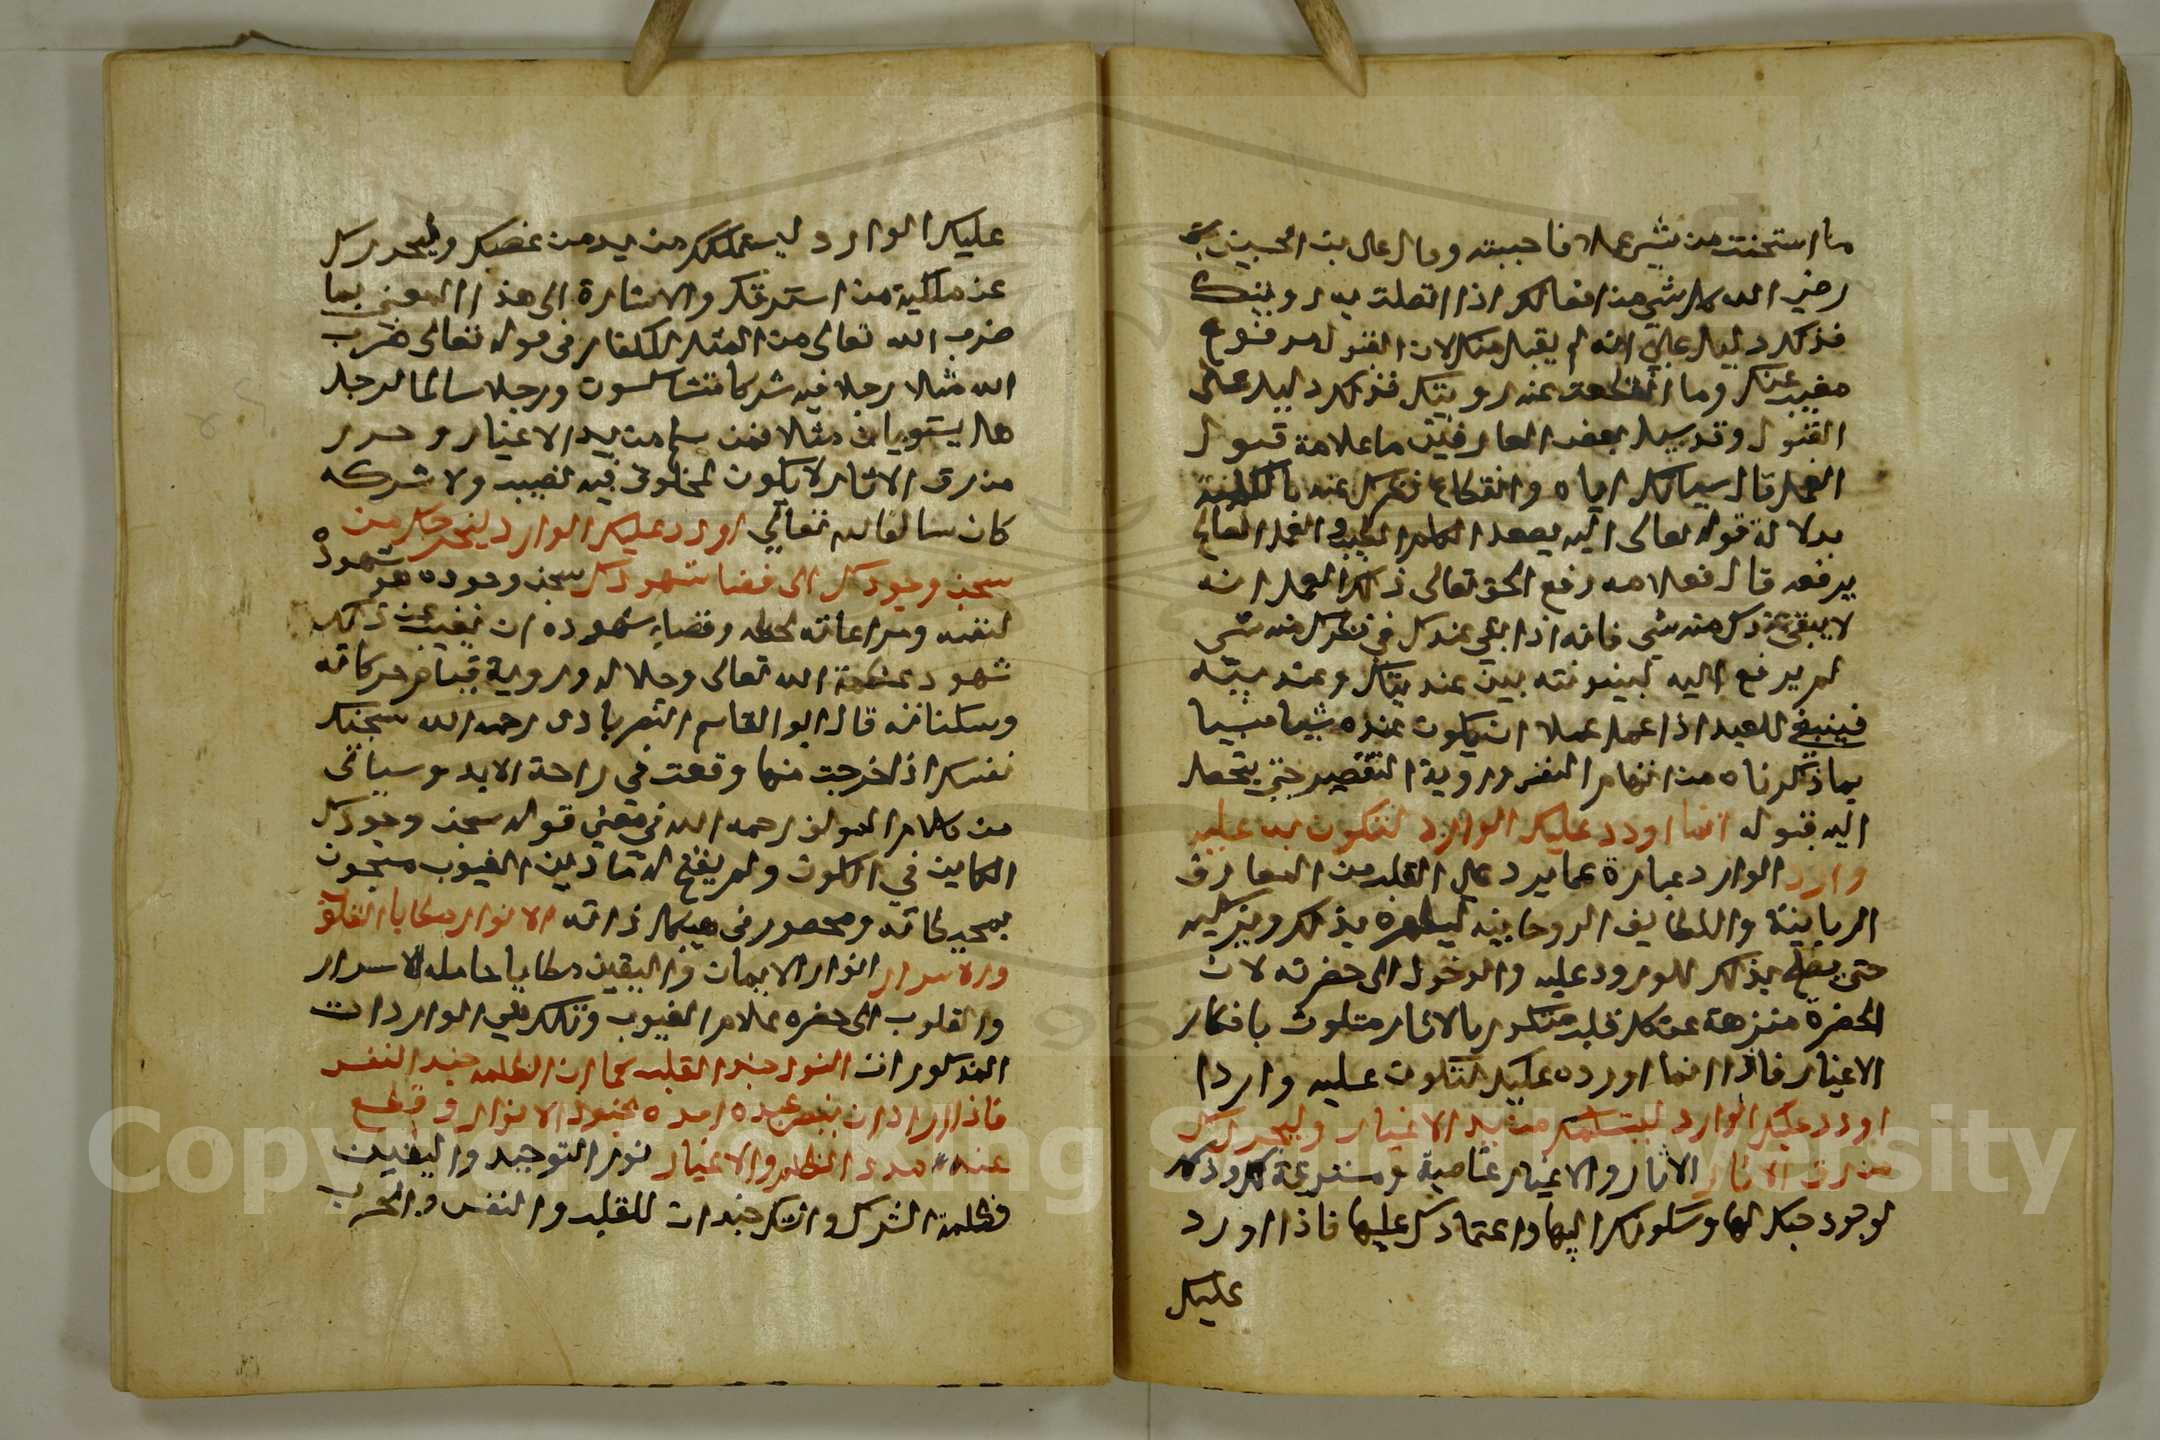 ما استحسنت من شي عملا فاحببته وقال علي بن الحسين
رضي الله كل شي من افعالك اذا اتصلت به رويتك
فذلك دليل علي انه لم يقبل منك لان القبول مرفوع
مغيب عنك وما انقطعت عنه رويتك فذلك دليل على
القبول وقد سيل بعض العارفين ما علامة قبول
العمل قال نسيانك اياه وانقطاع نظرك عنه بالكلية
بدلالة قوله تعالى اليه يصعد الكلم الطيب والعمل الصالح
يرفعه قال فعلامه رفع الحق تعالى ذلك العمل انه
لا يبقى عندك منه شي فانه اذا بقي عندك في نظرك منه شي
لم يرفع اليه لبينونته بين عنديتك وعنديته
فينبغي للعبد اذا عمل عملا ان يكون عنده نسيا منسيا
بما ذكرناه من اتهام النفس وروية التقصير حتي يتحصل
اليه قبوله انما اورد عليك الوارد لتكون به عليه
وارد الوارد عبارة عما يرد علي القلب من المعارف
الربانية واللطايف الروحانيه ليطهره بذلك ويزكيه
حتي يصلح بذلك للورود عليه والدخول الى حضرته لان
الحضرة منزهة عن كل قلب متكدر بالاثار متلوث باقذار
الاغيار فاذا انما اورده عليك لتكون عليه واردا
اورد عليك الوارد ليتسلمك من يد الاغيار وليحررك
من رق الاثار الاثار والاغيار غاصبة ومسترقة لك وذلك
لوجود حبك لها وسكونك اليها واعتمادك عليها فاذا اورد
عليك
عليك الوارد ليستملكك من يد من غصبك وليحررك
عن ملكية من استرقك والاشارة الى هذا المعني بما
ضرب الله تعالى من المثل للكفار في قوله تعالى ضرب
الله مثلا رجلا فيه شركا متشاكسون ورجلا سالما لرجل
هل يستويان مثلا فمن سلم من يد الاغيار وحرر
من رق الاثار لا يكون لمخلوق فيه نصيب ولا شركه
كان سالما لله تعالي اورد عليك الوارد ليخرجك من
سجن وجودك الى فضا شهودك سجن وجوده هو شهوده
لنفسه ومراعاته لحظه وفضاء شهوده ان يغيب عن ذلك
شهود عظمة الله تعالى وجلاله وروية قيام حركاته
وسكناته قال ابو القاسم النصربادى رحمه الله سجنك
نفسك اذا خرجت منها وقعت في راحة الابد وسياتى
من كلام المولف رحمه الله في معني قوله سجن وجودك
الكاين في الكون ولم يفتح له ميادين الغيوب مسجون
بمحيطاته ومحصور في هيكل ذاته الانوار مطايا القلوب
والاسرار انوار الايمان واليقين مطايا حامله لاسرار
والقلوب الى حضره علام الغيوب وتلك هي الواردات
المذكورات النور جند القلب كما ان الظلمه جند النفس
فاذا اراد ان ينصر عبده امده بجنود الانوار وقطع
عنه مدد الظلم والاغيار نور التوحيد واليقين
وظلمة الشرك والشك جندان للقلب والنفس والحرب